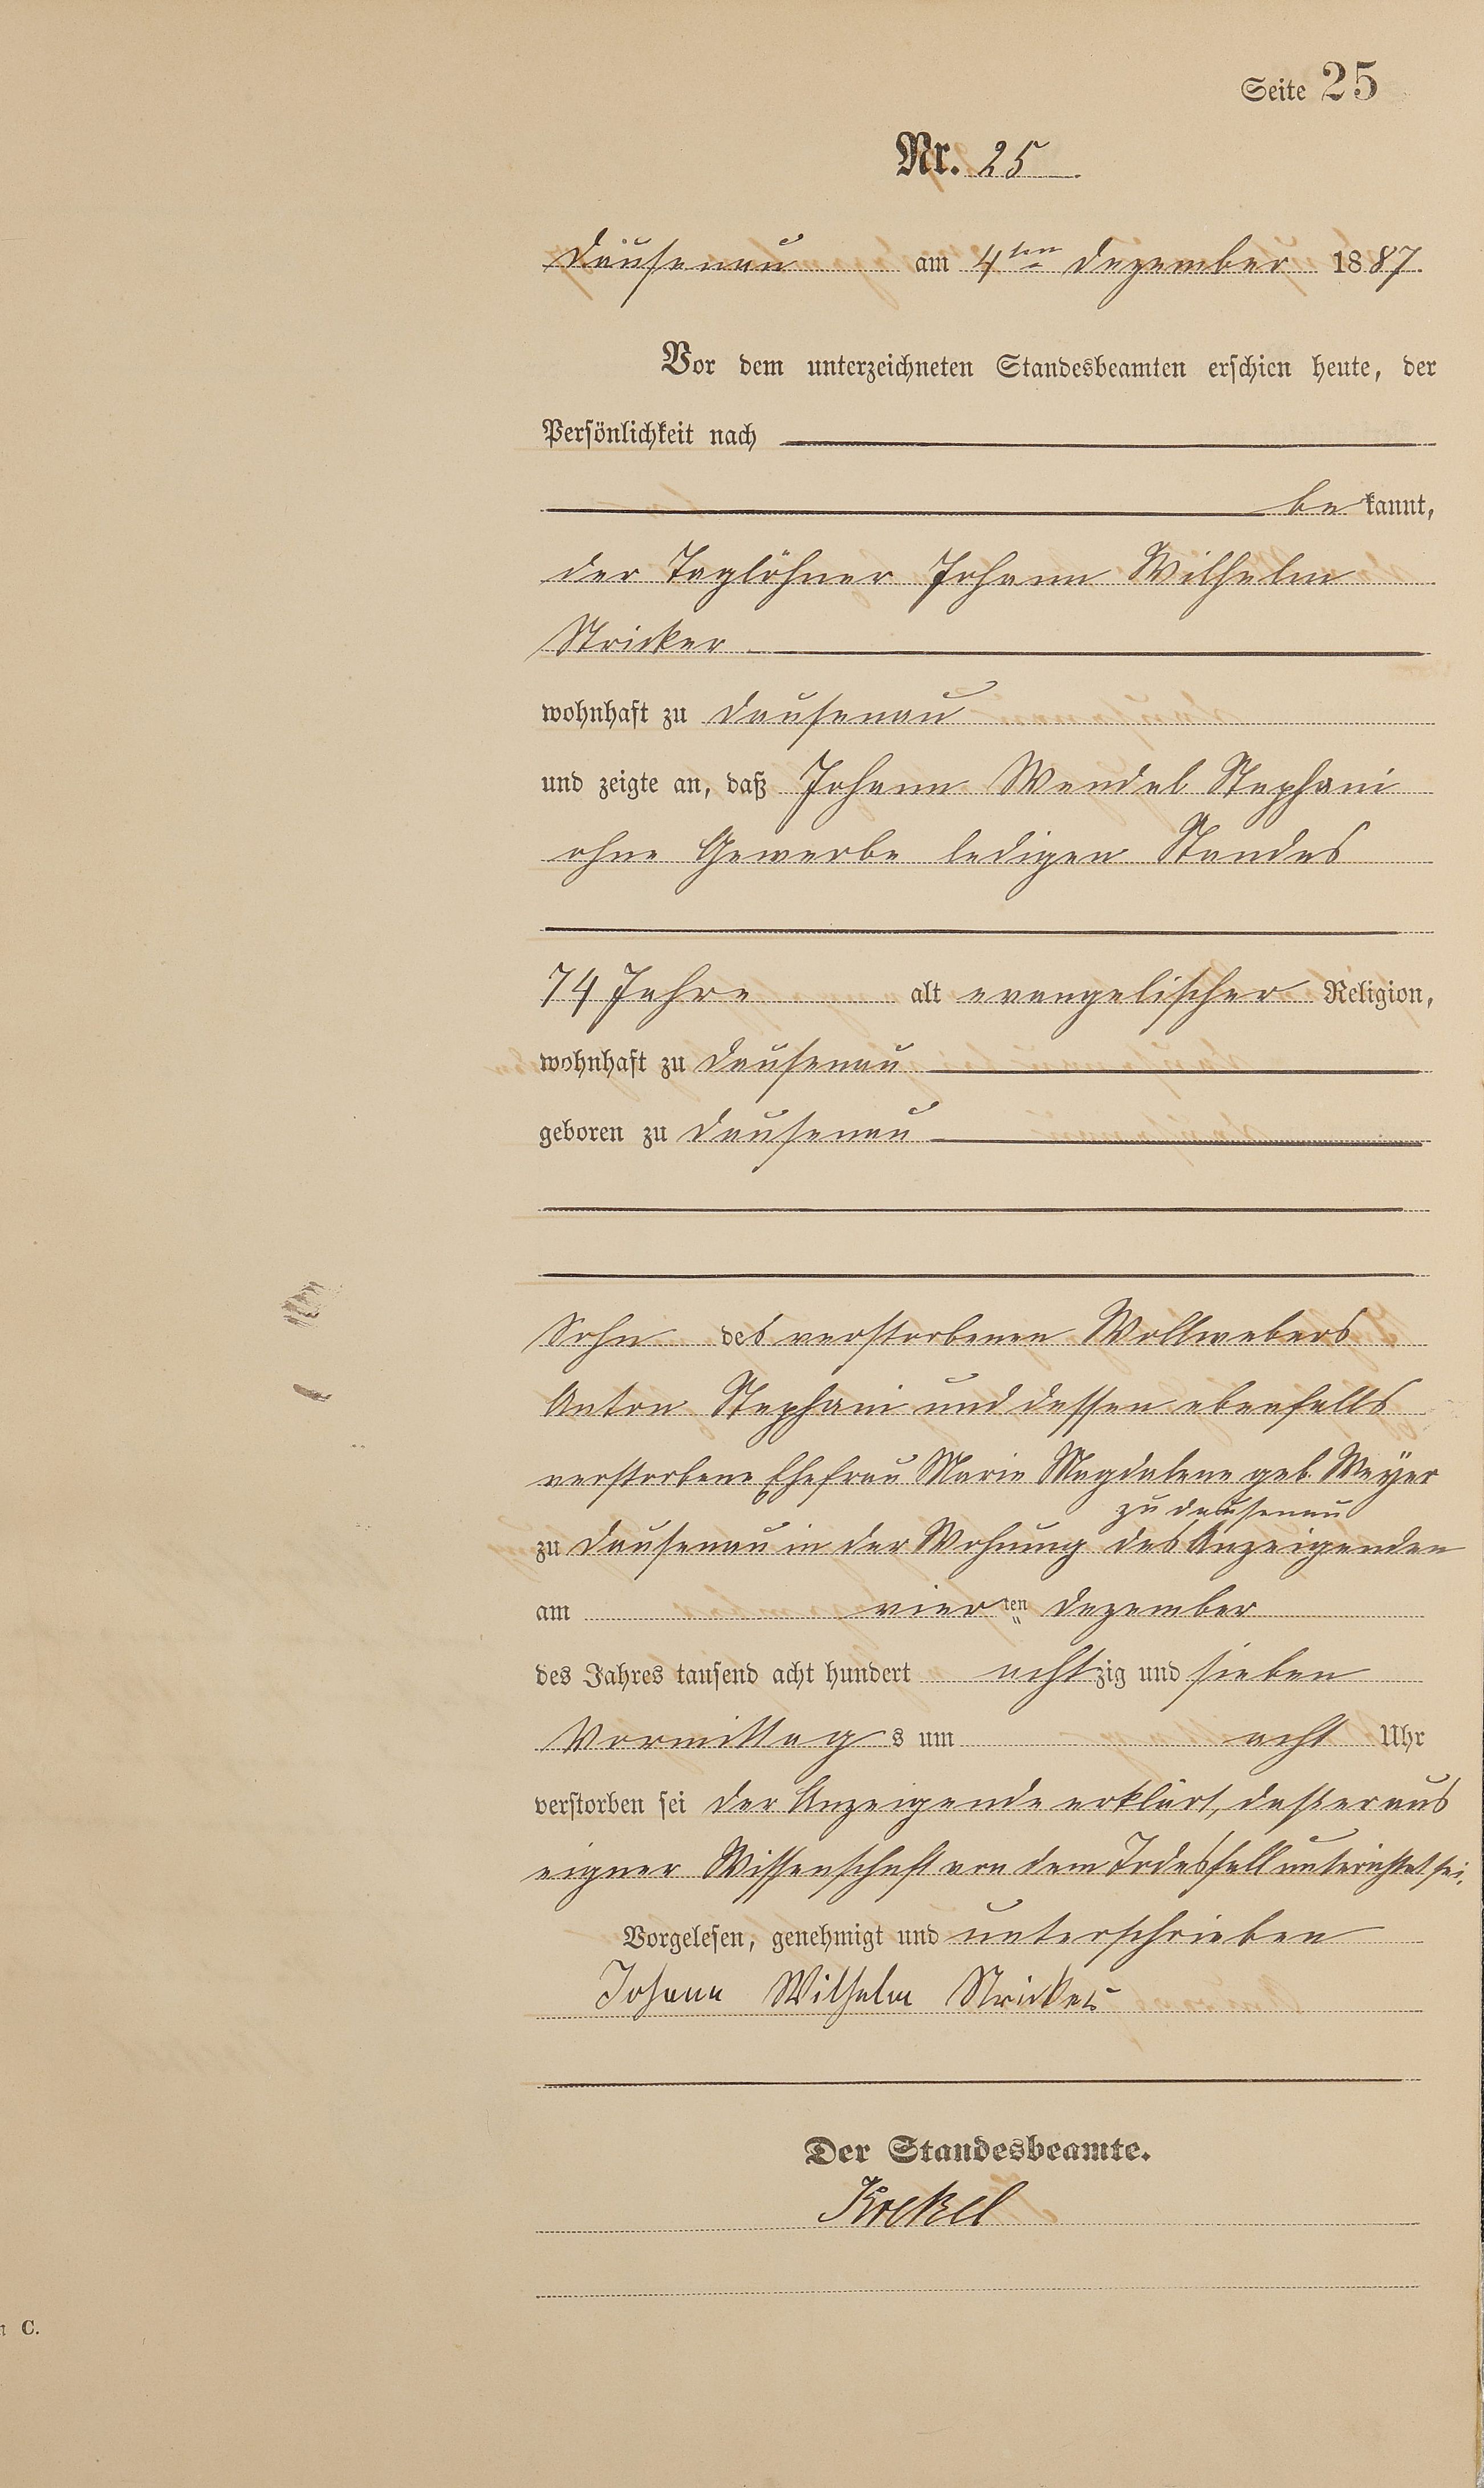 Seite 25
Nr. 25
Dausenau am 4ten Dezember 1887.
Vor dem unterzeichneten Standesbeamten erschien heute, der
Persönlichkeit nach
be kannt,
der Taglöhner Johann Wilhelm
Stricker
wohnhaft zu Dausenau
und zeigte an, daß Johann Wendel Stephani
ohne Gewerbe ledigen Standes
74 Jahre alt evangelischer Religion,
wohnhaft zu Dausenau
geboren zu Dausenau
Sohn des verstorbenen Wollwebers
Anton Stephani und dessen ebenfalls
verstorbene Ehefrau Marie Magdalene geb. Meÿer
zu Dausenau
zu Dausenau in der Wohnung des Anzeigenden
am vier ten Dezember
des Jahres tausend acht hundert achtzig und sieben
Vormittag s um acht Uhr
verstorben sei der Anzeigende erklärt, daß er aus
eigner Wissenschaft von dem Todesfall unterichtet sei.
Vorgelesen, genehmigt und unterschrieben
Johann Wilhelm Stricker
Der Standesbeamte.
C.